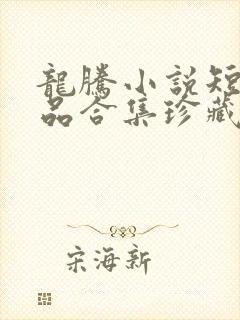 龍騰小說短
品合集珍藏
宋海新